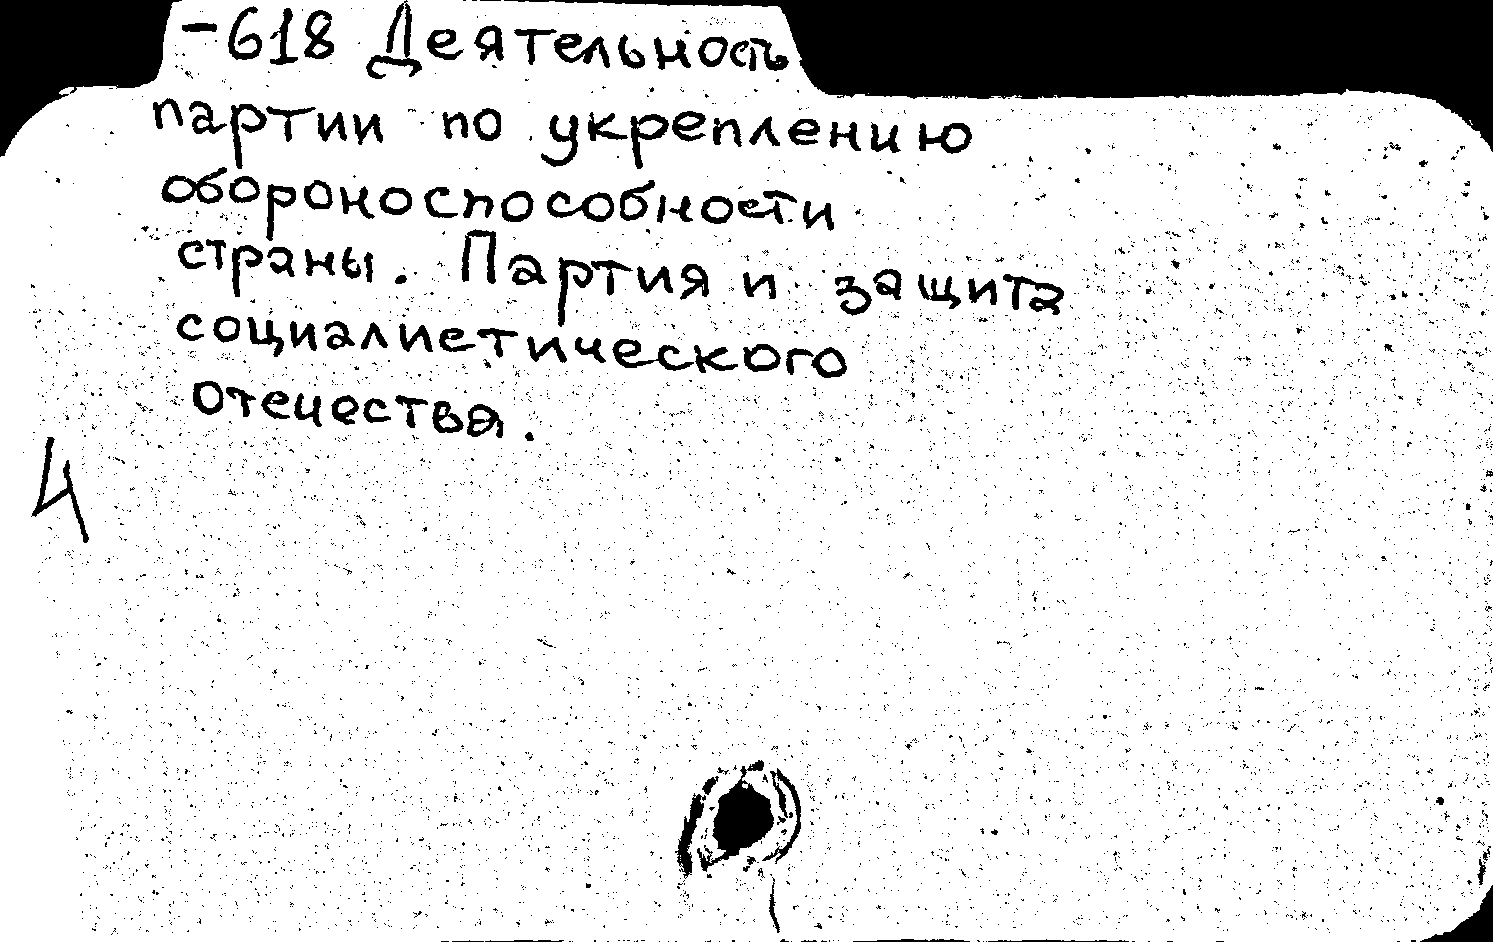 -618 Деятельность
партии по укреплению
обороноспособности
страны. Партия и защита
социалистического
отечества.
4